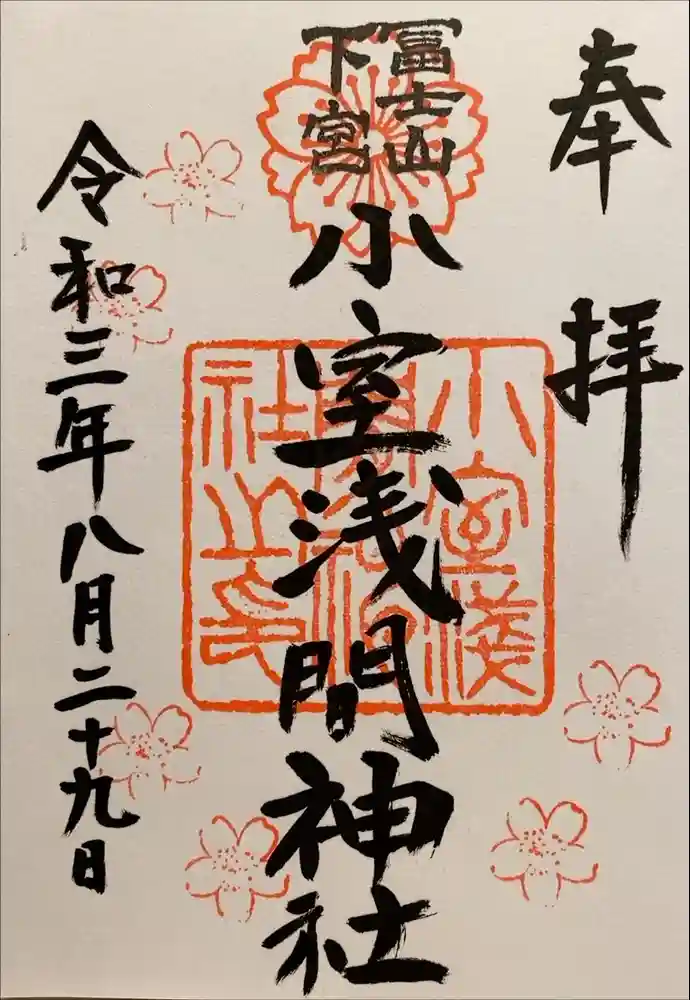 奉拝
冨士山
下宮
小室浅間神社
小室淺
間神
社之印
令和三年八月二十九日